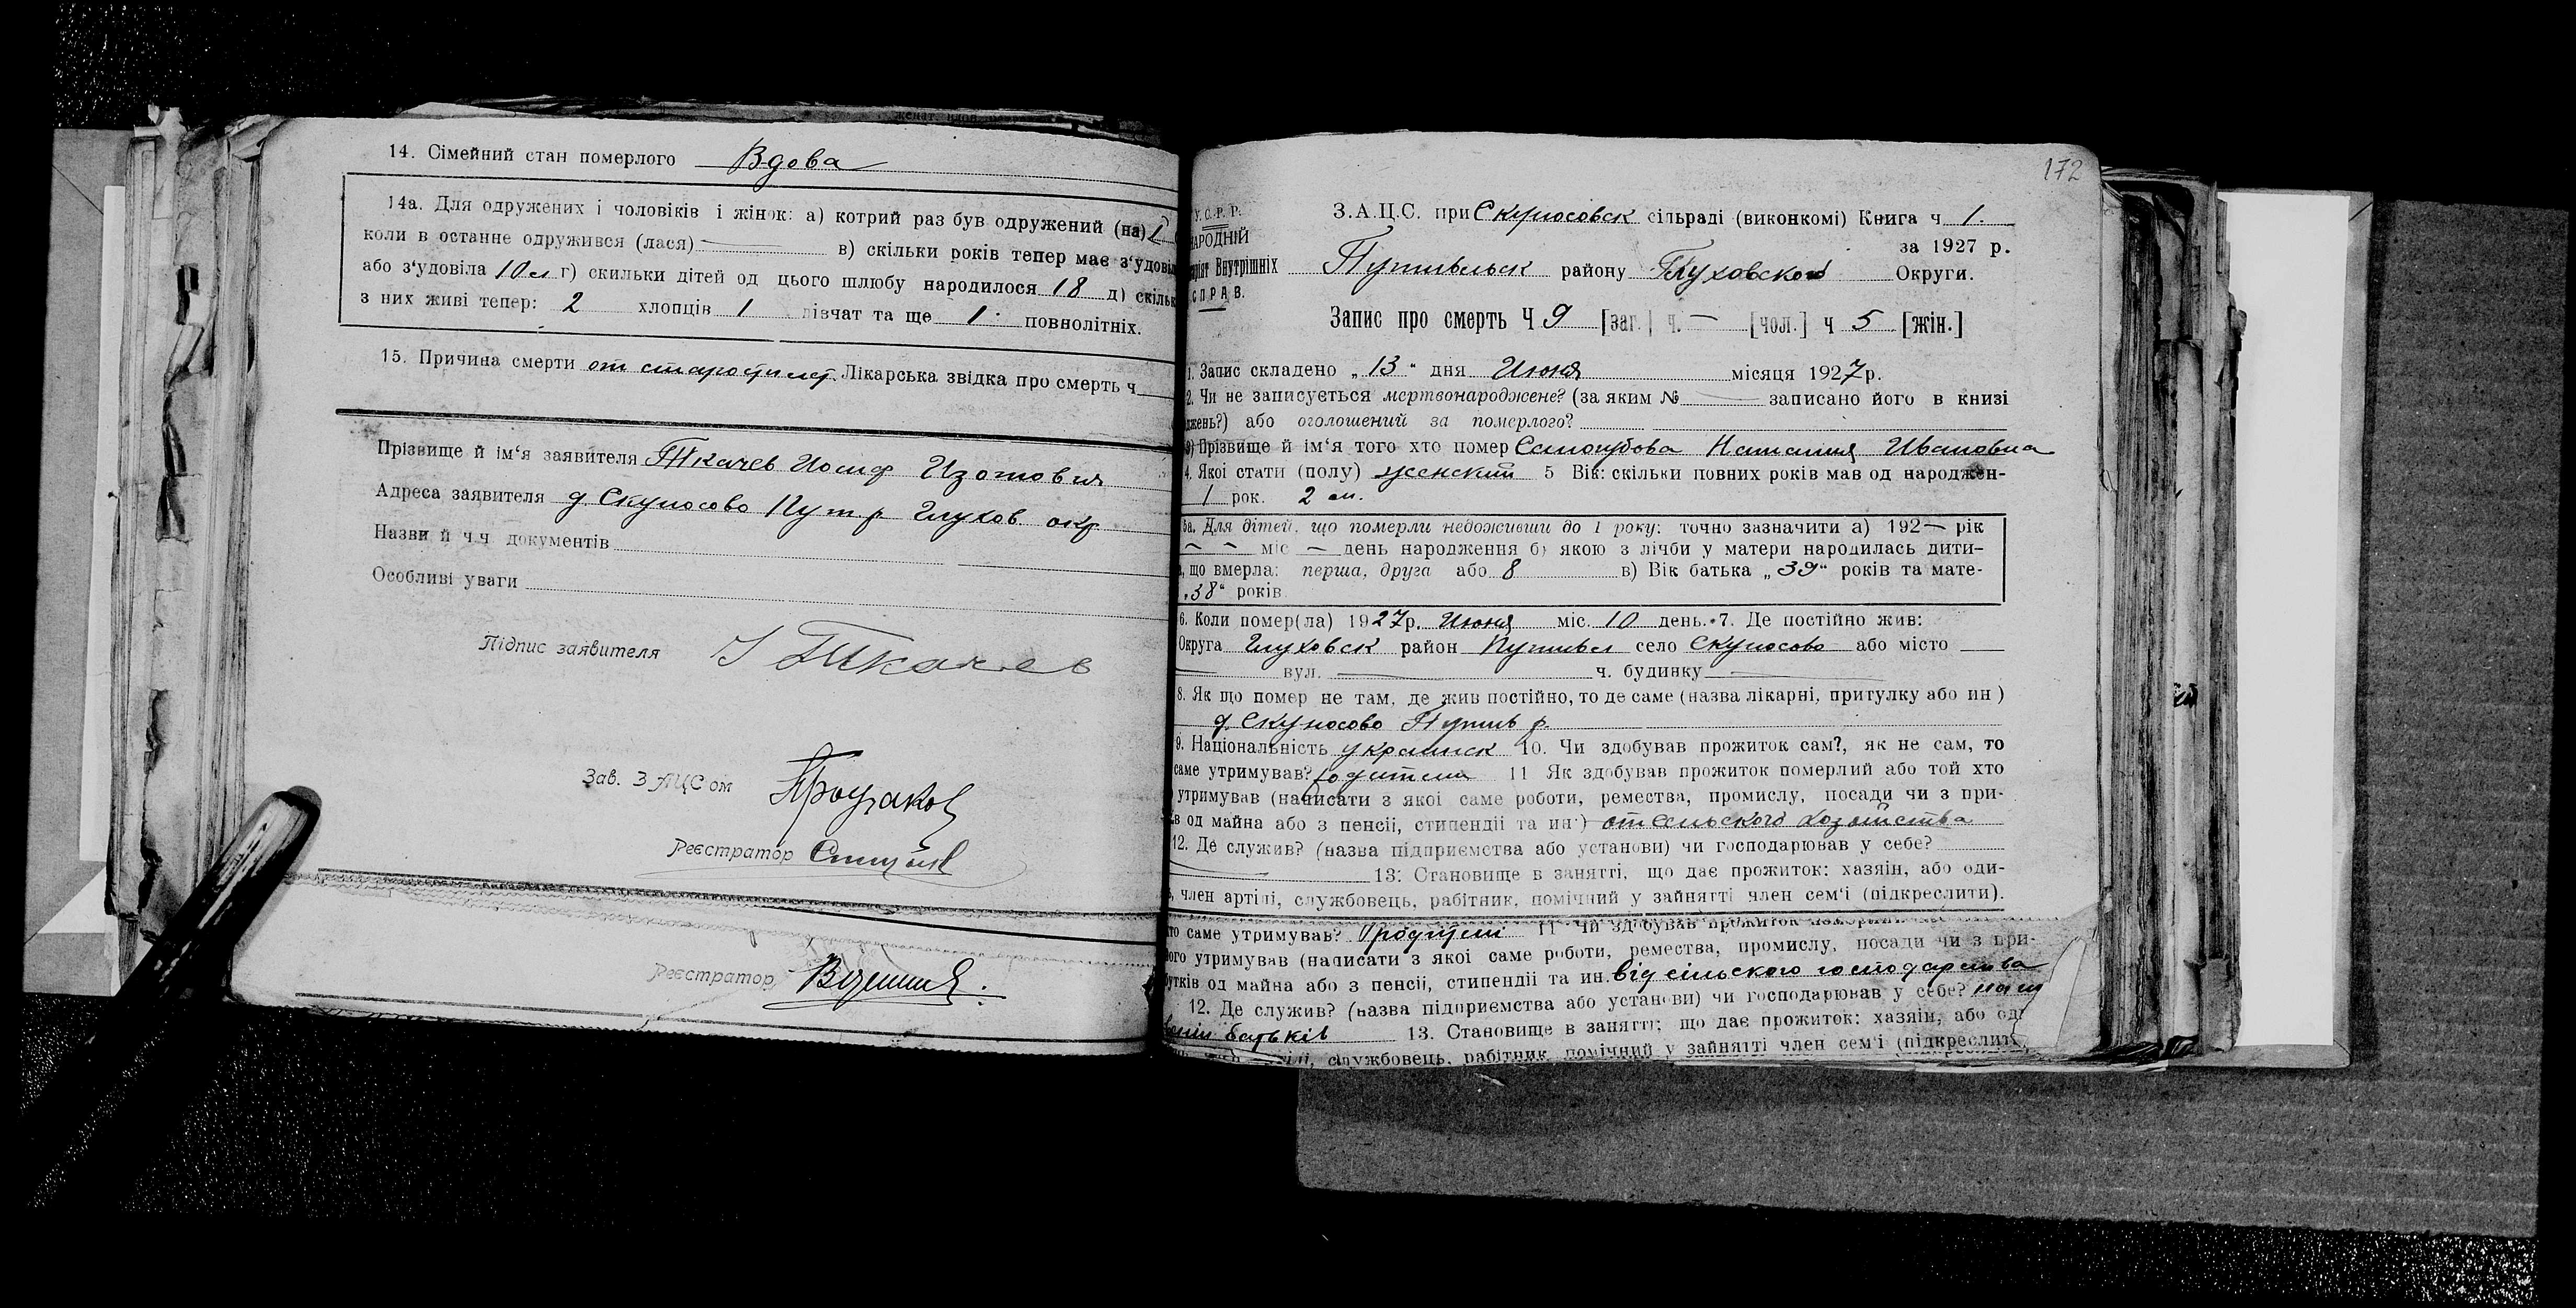 14. Сімейний стан померлого Вдова
14а. Для одружених і чоловіків і жінок: а) котрий раз був одружений (на) 1
коли в останне одружився (лася) — в) скільки років тепер має з‘удовів
або з‘удовіла 10 л г) скильки дітей од цього шлюбу народилося 18 д) скільк
з них живі тепер: 2 хлопців 1 дівчат та ще 1 повнолітніх.
15. Причина смерти от старости лет. Лікарська звідка про смерть ч
Прізвище й ім‘я заявителя Ткачев Иосиф Изотович
Адреса заявителя д. Скуносово Пут р Глухов окр
Назви й ч.ч документів
Особливі уваги
Підпис заявителя И Ткачев
Зав. ЗАЦСом
Реєстратор
Реєстратор
172
У.С.Р.Р.
З.А.Ц.С. при Скуносовск сільраді (виконкомі) Книга ч 1.
АРОДНІЙ
за 1927 р.
аріят Внутрішніх Путивльск району Глуховской Округи.
СПРАВ.
Запис про смерть Ч 9 [заг.] ч. — [чол.] ч 5 [жін.]
1. Запис складено „13“ дня Июня місяця 1927р.
2. Чи не записується мертвонароджене? (за яким № — записано його в книзі
джень?) або оголошений за померлого?
3) Прізвище й ім‘я того хто помер Самогубова Наталия Ивановна
4. Якої стати (полу) женский 5 Вік: скільки повних років мав од народжен-
1 рок. 2 м.
5а. Для дітей, що померли недоживши до 1 року: точно зазначити а) 192— рік
— — міс — день народження б) якою з лічби у матери народилась дити-
, що вмерла: перша, друга або 8 в) Вік батька „39“ років та мате-
„38“ років
6. Коли помер(ла) 1927р. Июня міс. 10 день. 7. Де постійно жив:
Округа Глуховск район Путивл село Скуносово або місто —
— вул. — ч. будинку —
8. Як що помер не там, де жив постійно, то де саме (назва лікарні, притулку або ин)
д. Скуносово Путив р.
9. Національність украинск 10. Чи здобував прожиток сам?, як не сам, то
саме утримував? родители 11 Як здобував прожиток померлий або той хто
утримував (написати з якої саме роботи, ремества, промислу, посади чи з при-
ів од майна або з пенсії, стипендії та ин.) от сельского хозяйства
12. Де служив? (назва підприємства або установи) чи господарював у себе?
— 13: Становище в занятті, що дає прожиток: хазяїн, або оди-
, член артілі, службовець, рабітник, помічний у зайнятті член сем‘ї (підкреслити).
то саме утримував? Продителі 11 Чи здобував прожиток
його утримував (написати з якої саме роботи, ремества, промислу, посади чи з при-
утків од майна або з пенсії, стипендії та ин. від сільского господарства
12. Де служив? (назва підприємства або установи) чи господарював у себе?
батьків 13. Становище в занятті: що дає прожиток: хазяїн, або од
службовець, рабітник, помічний у зайнятті член сем‘ї (підкреслит